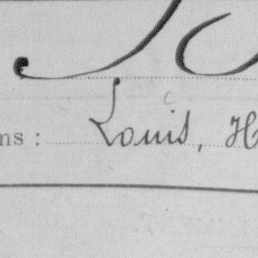 ns : Louis, H